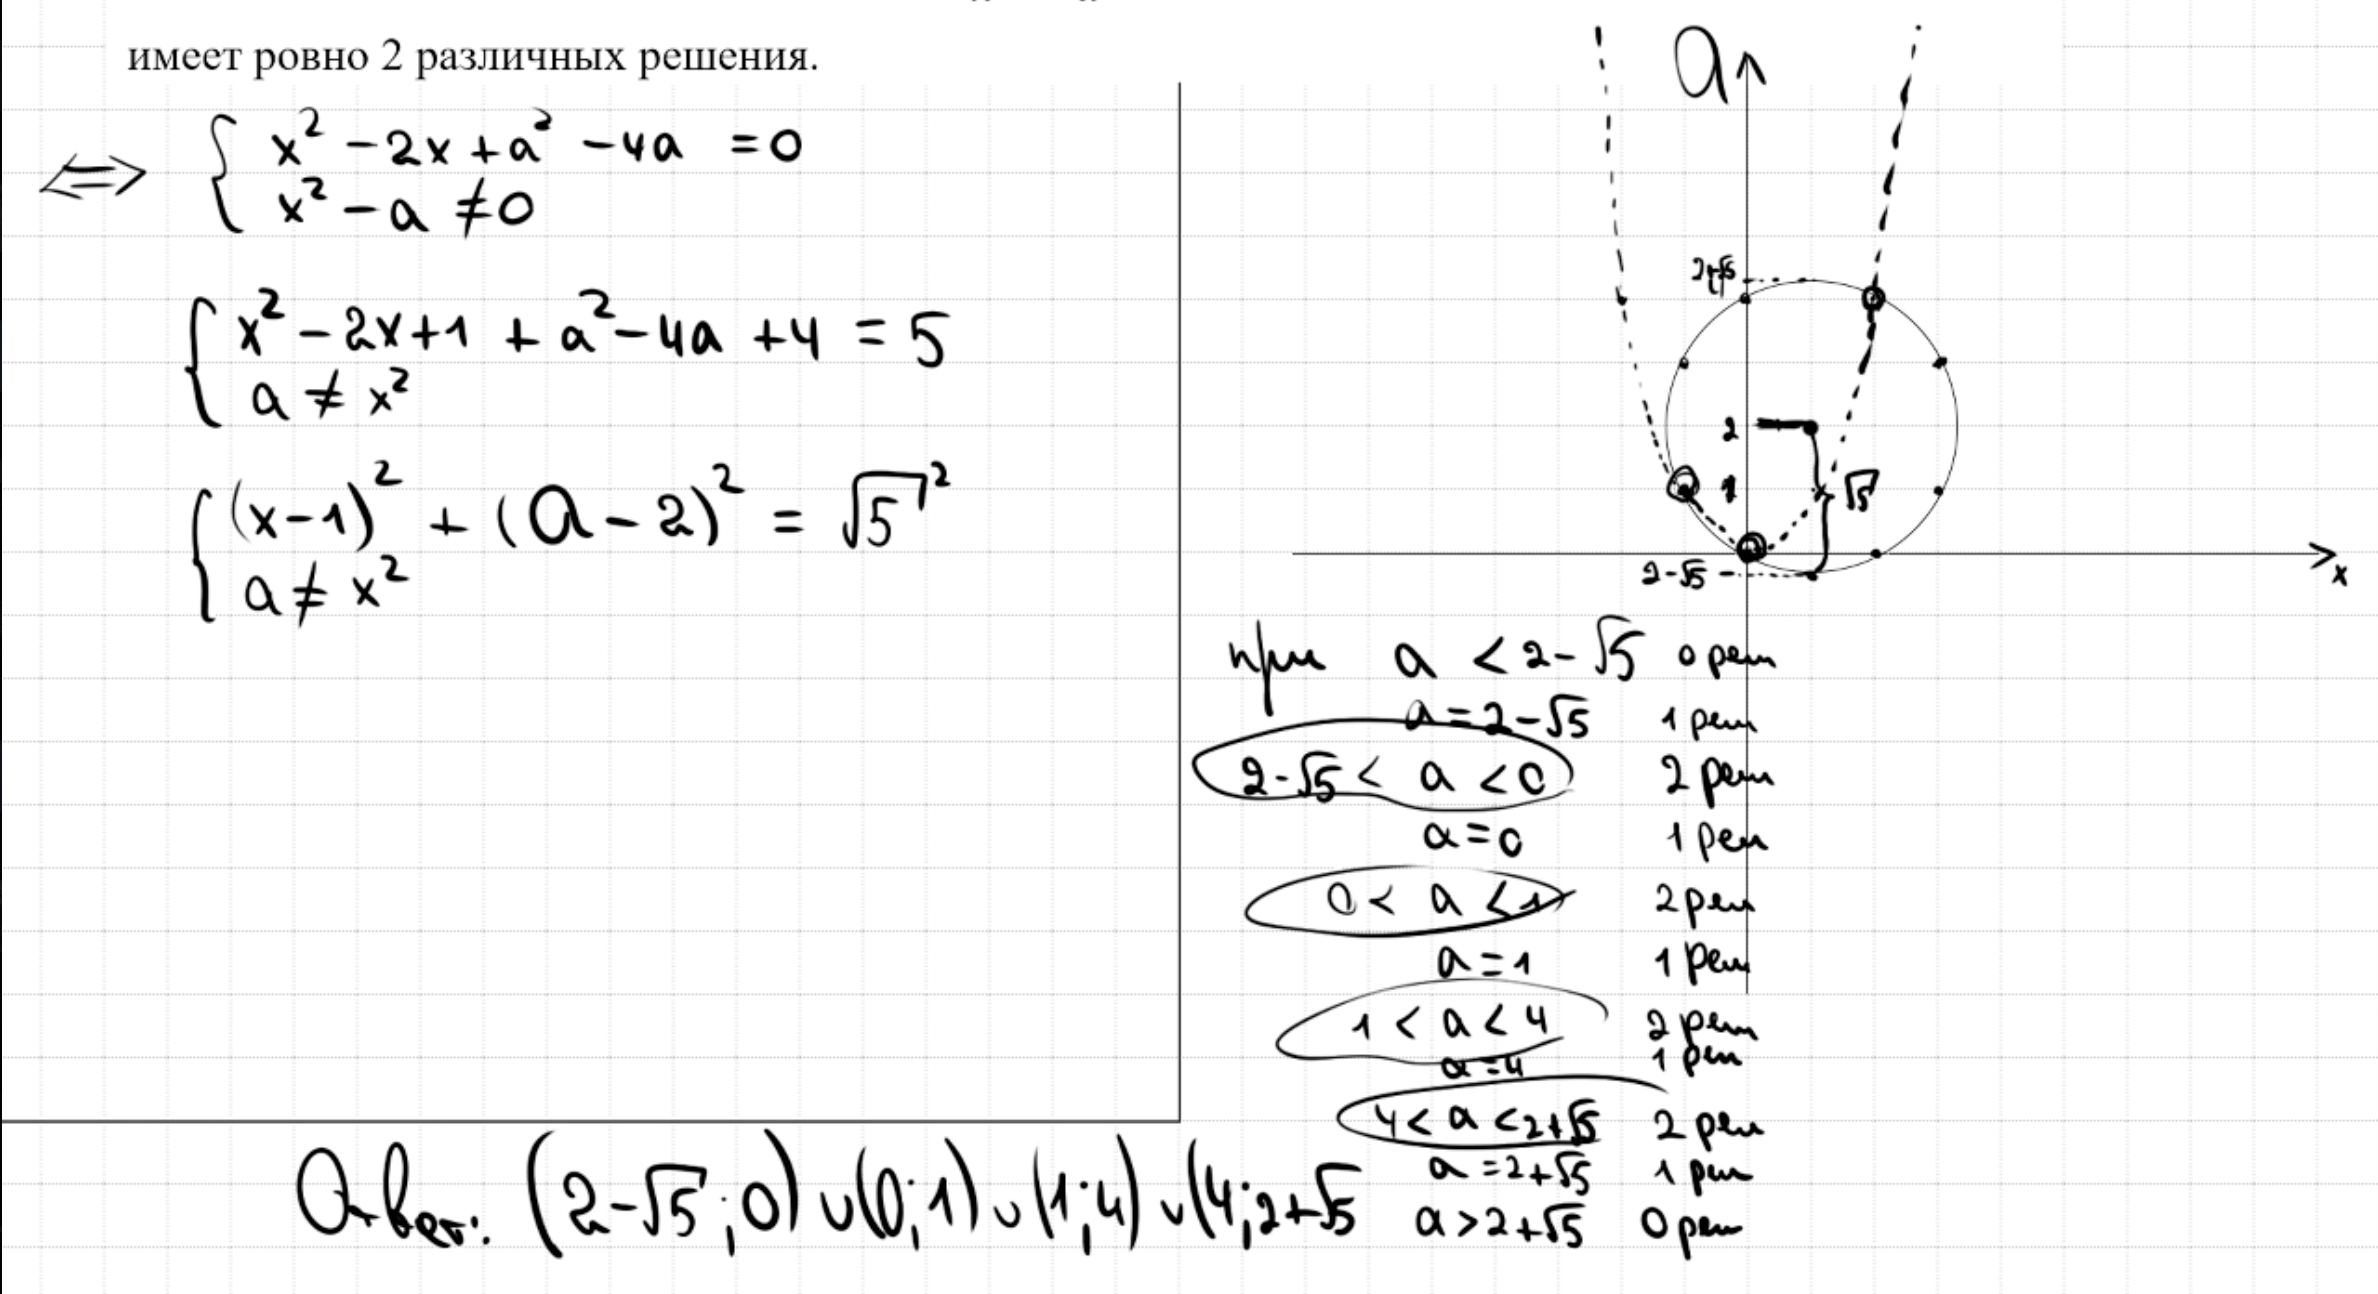 имеет ровно 2 различных решения.
⟺ { x² - 2x + a² - 4a = 0
x² - a ≠ 0
{ x² - 2x + 1 + a² - 4a + 4 = 5
a ≠ x²
{ (x - 1)² + (a - 2)² = √5²
a ≠ x²
a
2+√5
2
1
√5
2-√5
x
при a < 2-√5 0 реш
a = 2-√5 1 реш
2-√5 < a < 0 2 реш
a = 0 1 реш
0 < a < 1 2 реш
a = 1 1 реш
1 < a < 4 2 реш
a = 4 1 реш
4 < a < 2+√5 2 реш
a = 2+√5 1 реш
a > 2+√5 0 реш
Ответ: (2-√5; 0) ∪ (0; 1) ∪ (1; 4) ∪ (4; 2+√5